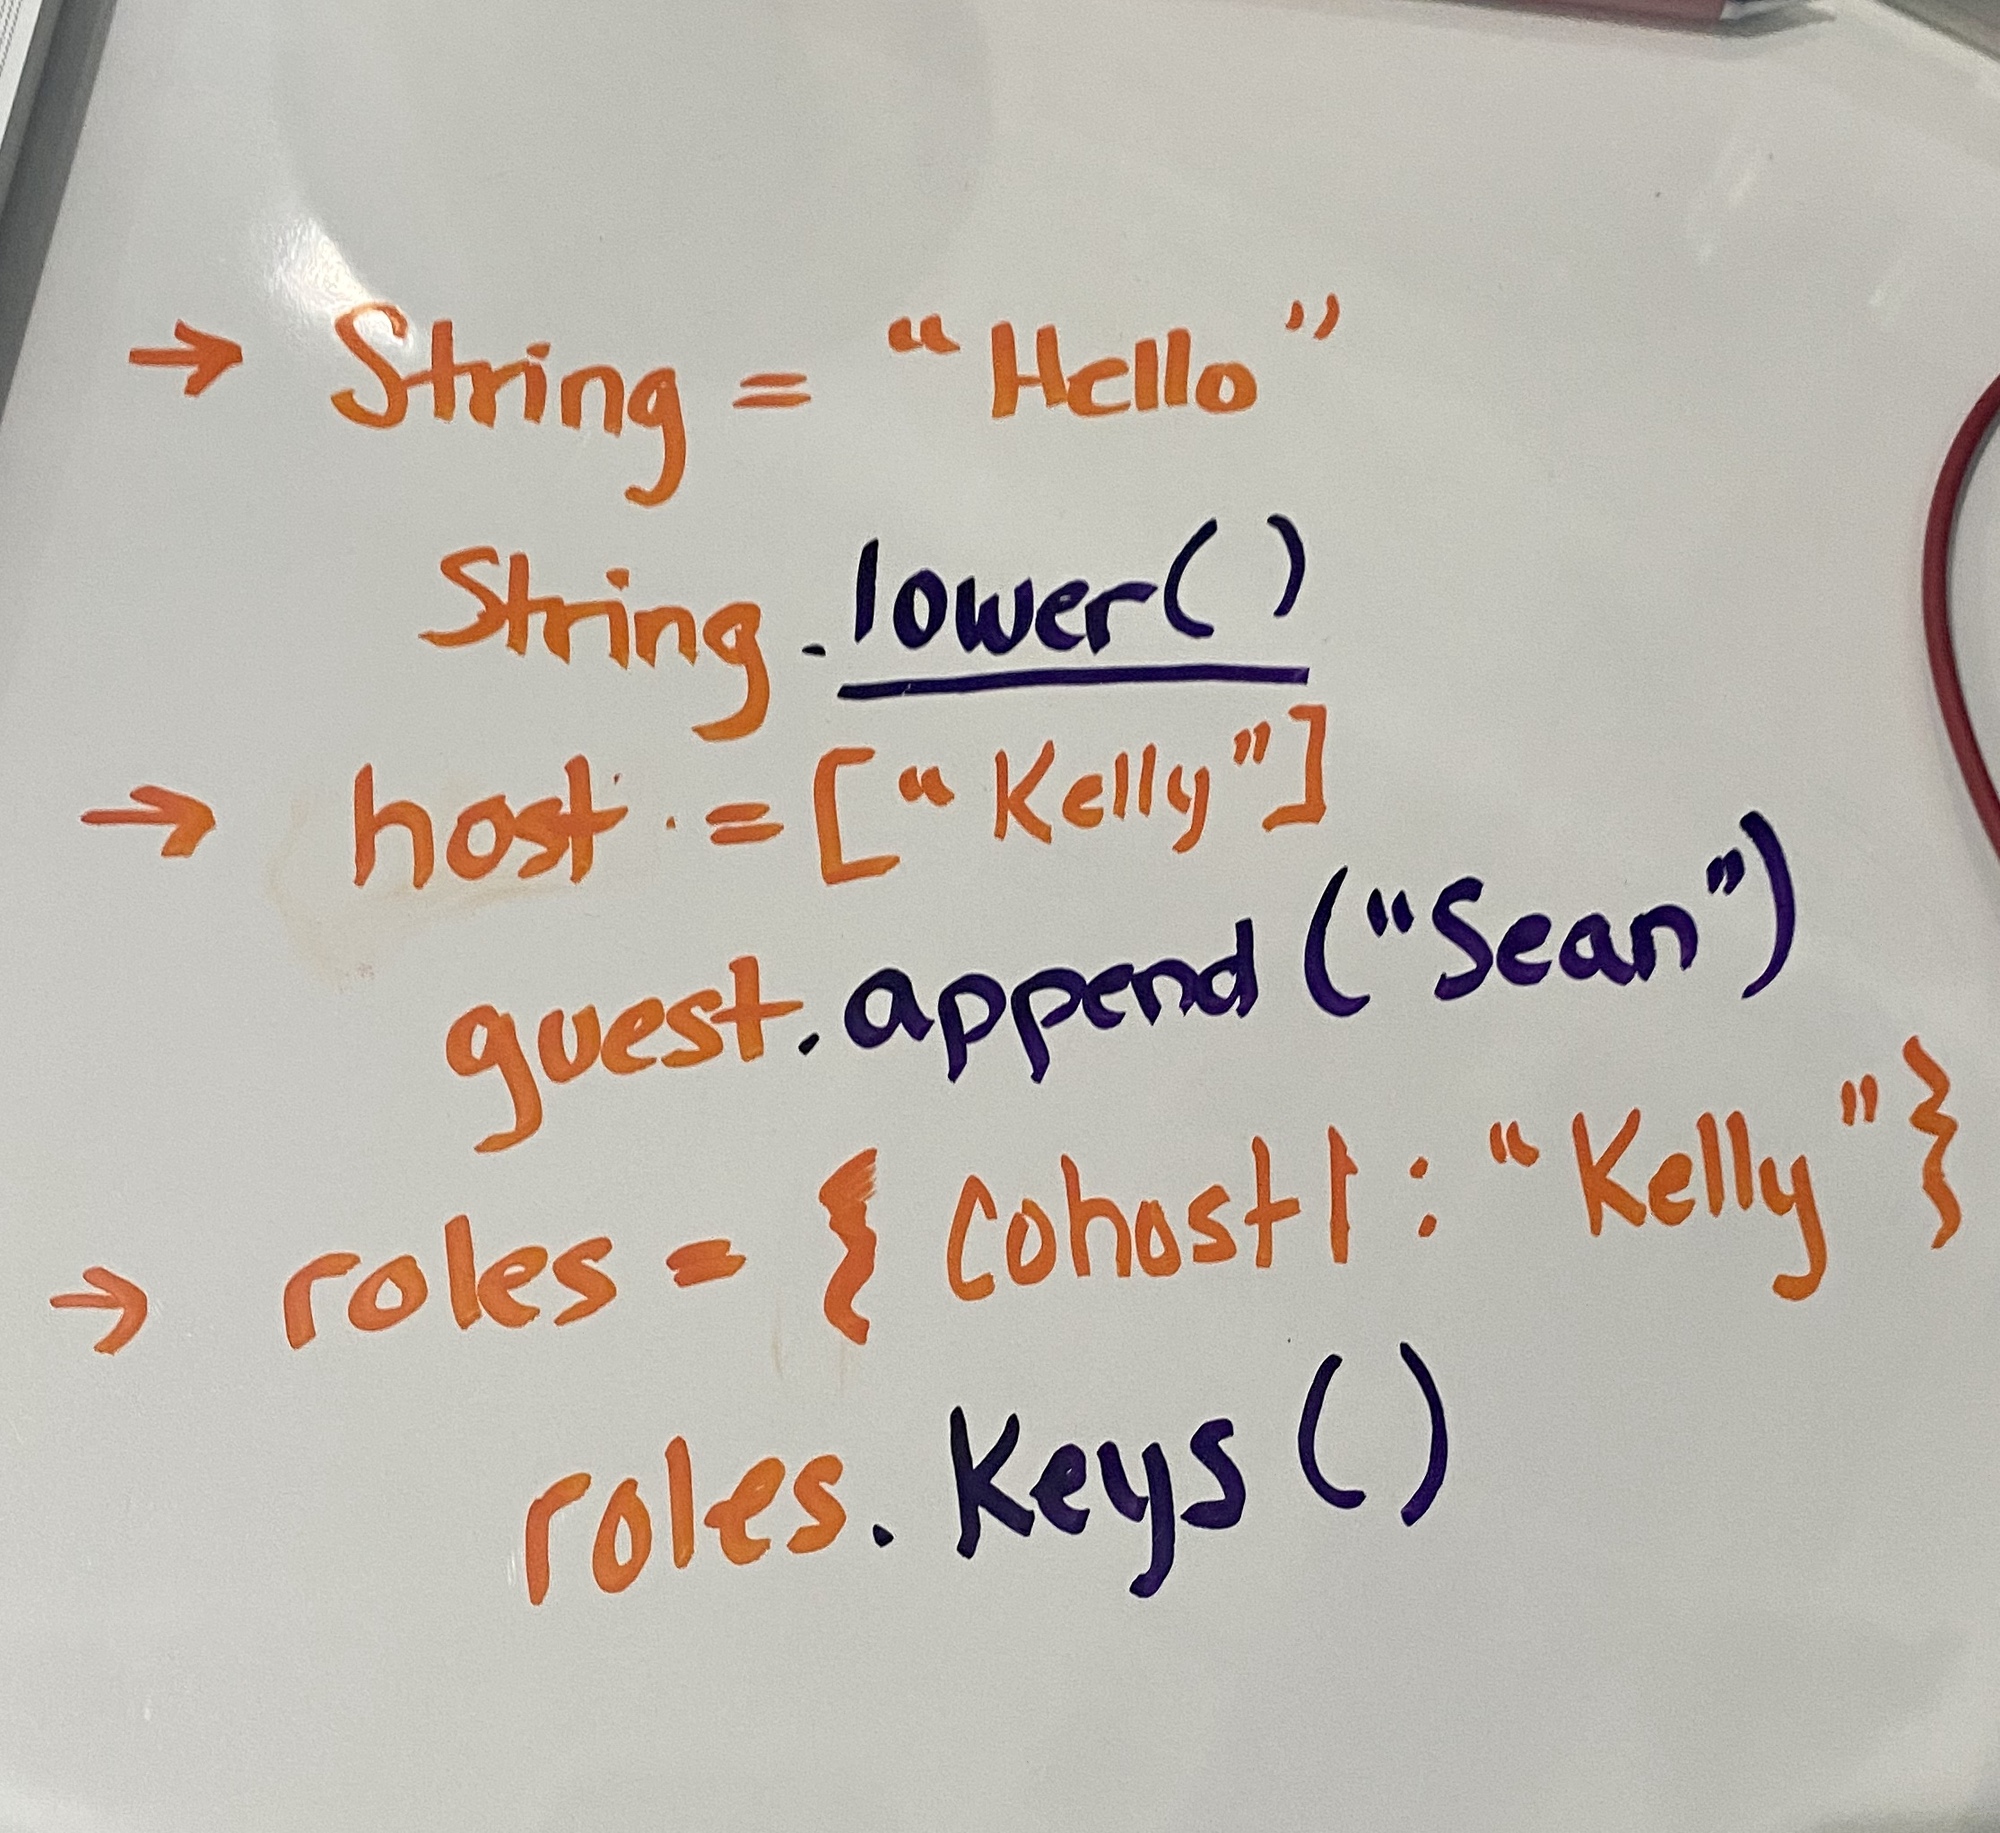 → String = “Hello”
String.lower()
→ host = [“Kelly”]
guest.append(“Sean”)
→ roles = { cohost1 : “Kelly”}
roles.keys()